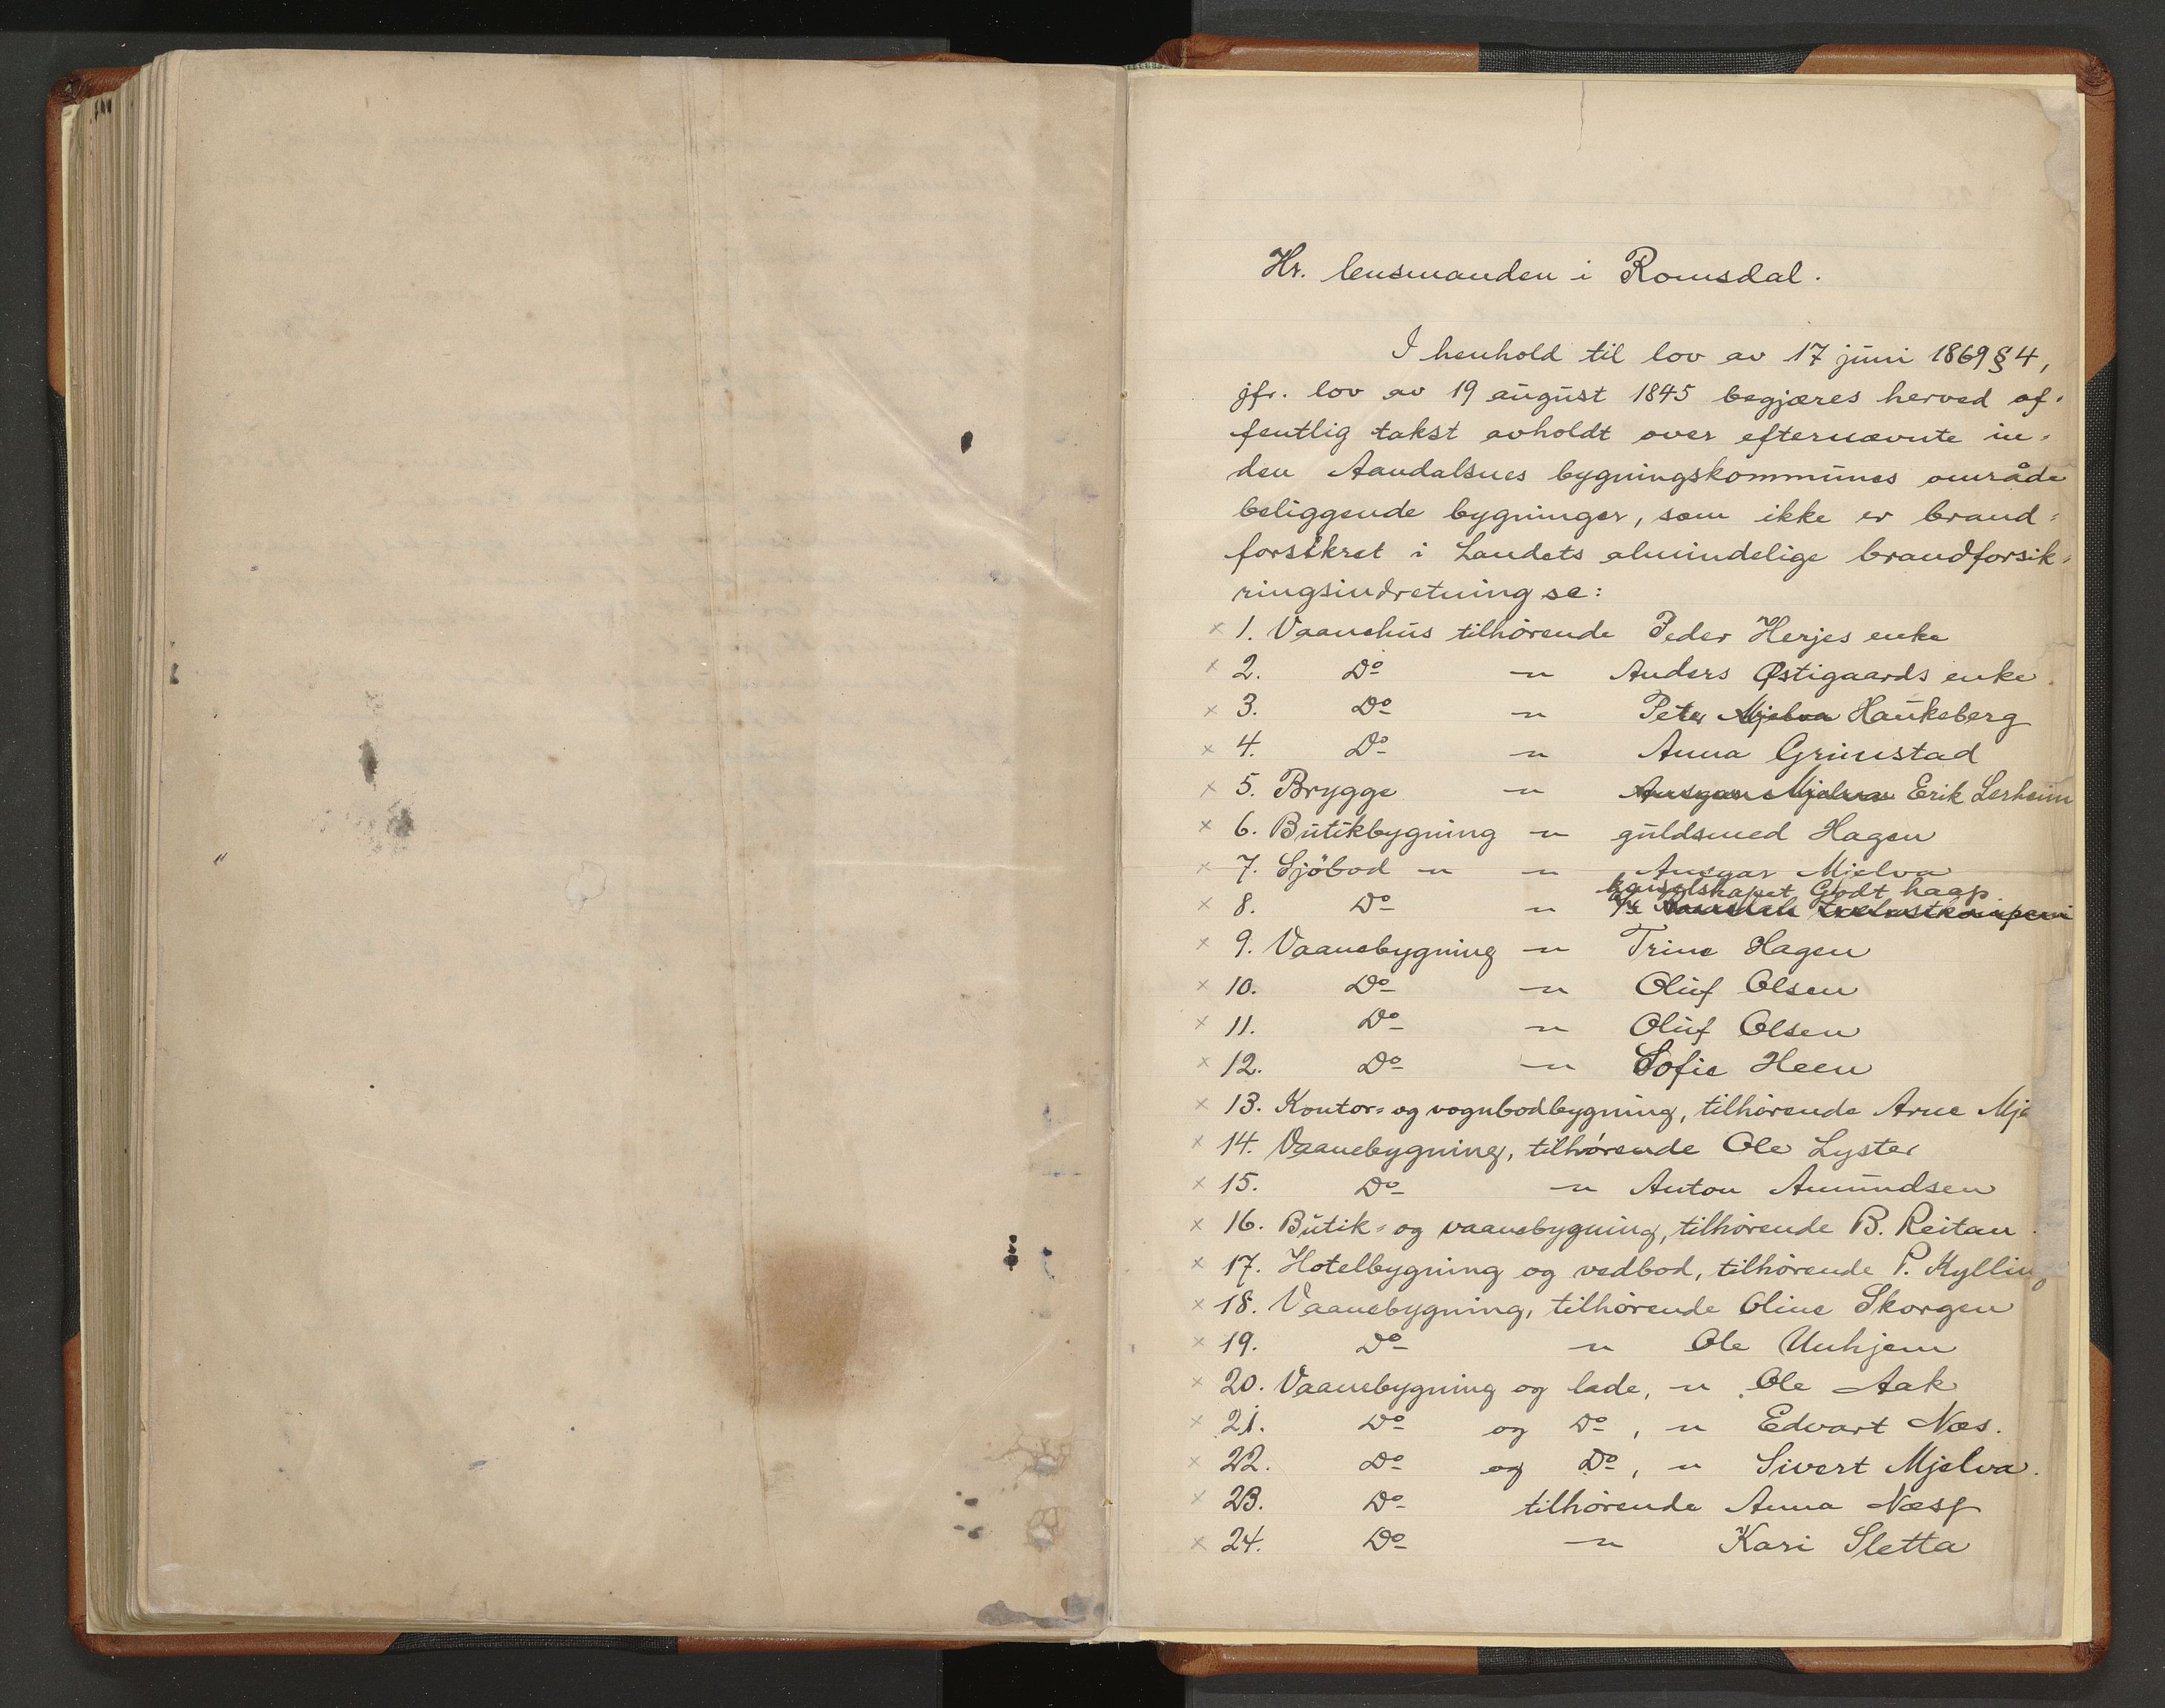 Hr. lensmanden i Romsdal.
I henhold til lov av 17 juni 1869 § 4,
jfr. lov av 19 august 1845 begjæres herved of-
fentlig takst avholdt over efternævnte in-
den Aandalsnes bygningskommunes område
beliggende bygninger, som ikke er brand-
forsikret i Landets almindelige brandforsik-
ringsindretning se:
× 1. Vaanehus tilhörende Peder Herjes enke
× 2. Do — " — Anders Østigaards enke.
× 3. Do — " — Peter Mjelva Haukeberg
× 4. Do — " — Anna Grimstad
× 5. Brygge — " — Ansgar Mjelva Erik Lerheim
× 6. Butikbygning — " — guldsmed Hagen
× 7. Sjöbod — " — — " — Ansgar Mjelva
Godt haap
× 8. Do — " — Romsdals
× 9. Vaanebygning — " — Trine Hagen
× 10. Do — " — Oluf Olsen
× 11. Do — " — Oluf Olsen
× 12. Do — " — Sofie Heen
× 13. Kontor- og vognbodbygning, tilhörende Arne Mje
× 14. Vaanebygning, tilhörende Ole Lyster
× 15. Do — " — Anton Amundsen
× 16. Butik- og vaanebygning, tilhörende B. Reitan.
× 17. Hotelbygning og vedbod, tilhörende P. Kylling
× 18. Vaanebygning, tilhörende Oline Skorgen
× 19. Do — " — Ole Unhjem
× 20. Vaanebygning og lade, — " — Ole Aak
× 21. Do og Do, — " — Edvart Næs.
× 22. Do og Do, — " — Sivert Mjelva.
× 23. Do tilhörende Anna Næss
× 24. Do — " — Kari Sletta